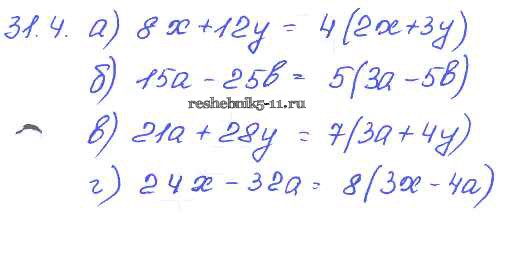 31.4. а) 8x + 12y = 4(2x+3y)
б) 15a - 25b = 5(3a - 5b)
reshebnik5-11.ru
в) 21a + 28y = 7(3a + 4y)
г) 24x - 32a = 8(3x - 4a)